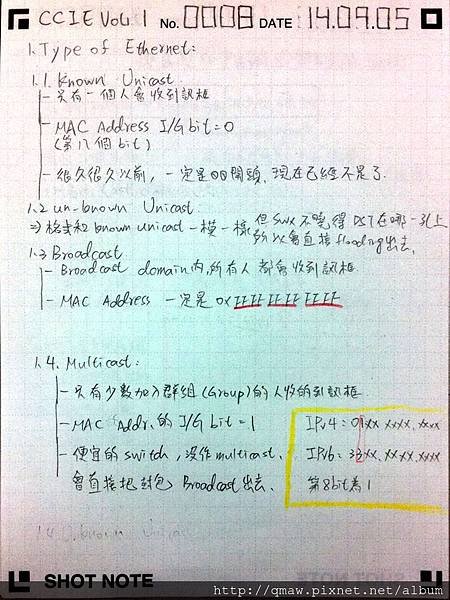 CCIE Vol. 1 No. 0008 DATE 14.09.05
1. Type of Ethernet:
1.1. Known Unicast
- 只有一個人會收到訊框
- MAC Address I/G bit = 0
(第八個bit)
- 很久很久以前, 一定是00開頭, 現在已經不是了.
1.2 un-known Unicast.
⇒ 格式和known unicast 一模一樣, 但SWX不曉得 DST在哪一孔上
所以會直接flooding出去.
1.3 Broadcast
- Broadcast domain內, 所有人都會收到訊框.
- MAC Address 一定是 0X FFFF FFFF FFFF
1.4. Multicast:
- 只有少數加入群組(Group)的人收的到訊框
- MAC Addr. 的 I/G bit = 1
- 便宜的switch, 沒作multicast.
會直接把封包 Broadcast出去.
IPv4 = 01xx xxxx.xxxx
IPv6 = 33xx.xxxx.xxxx
第8bit為1
1.4 Unknown
SHOT NOTE
http://qmaw.pixnet.net/album